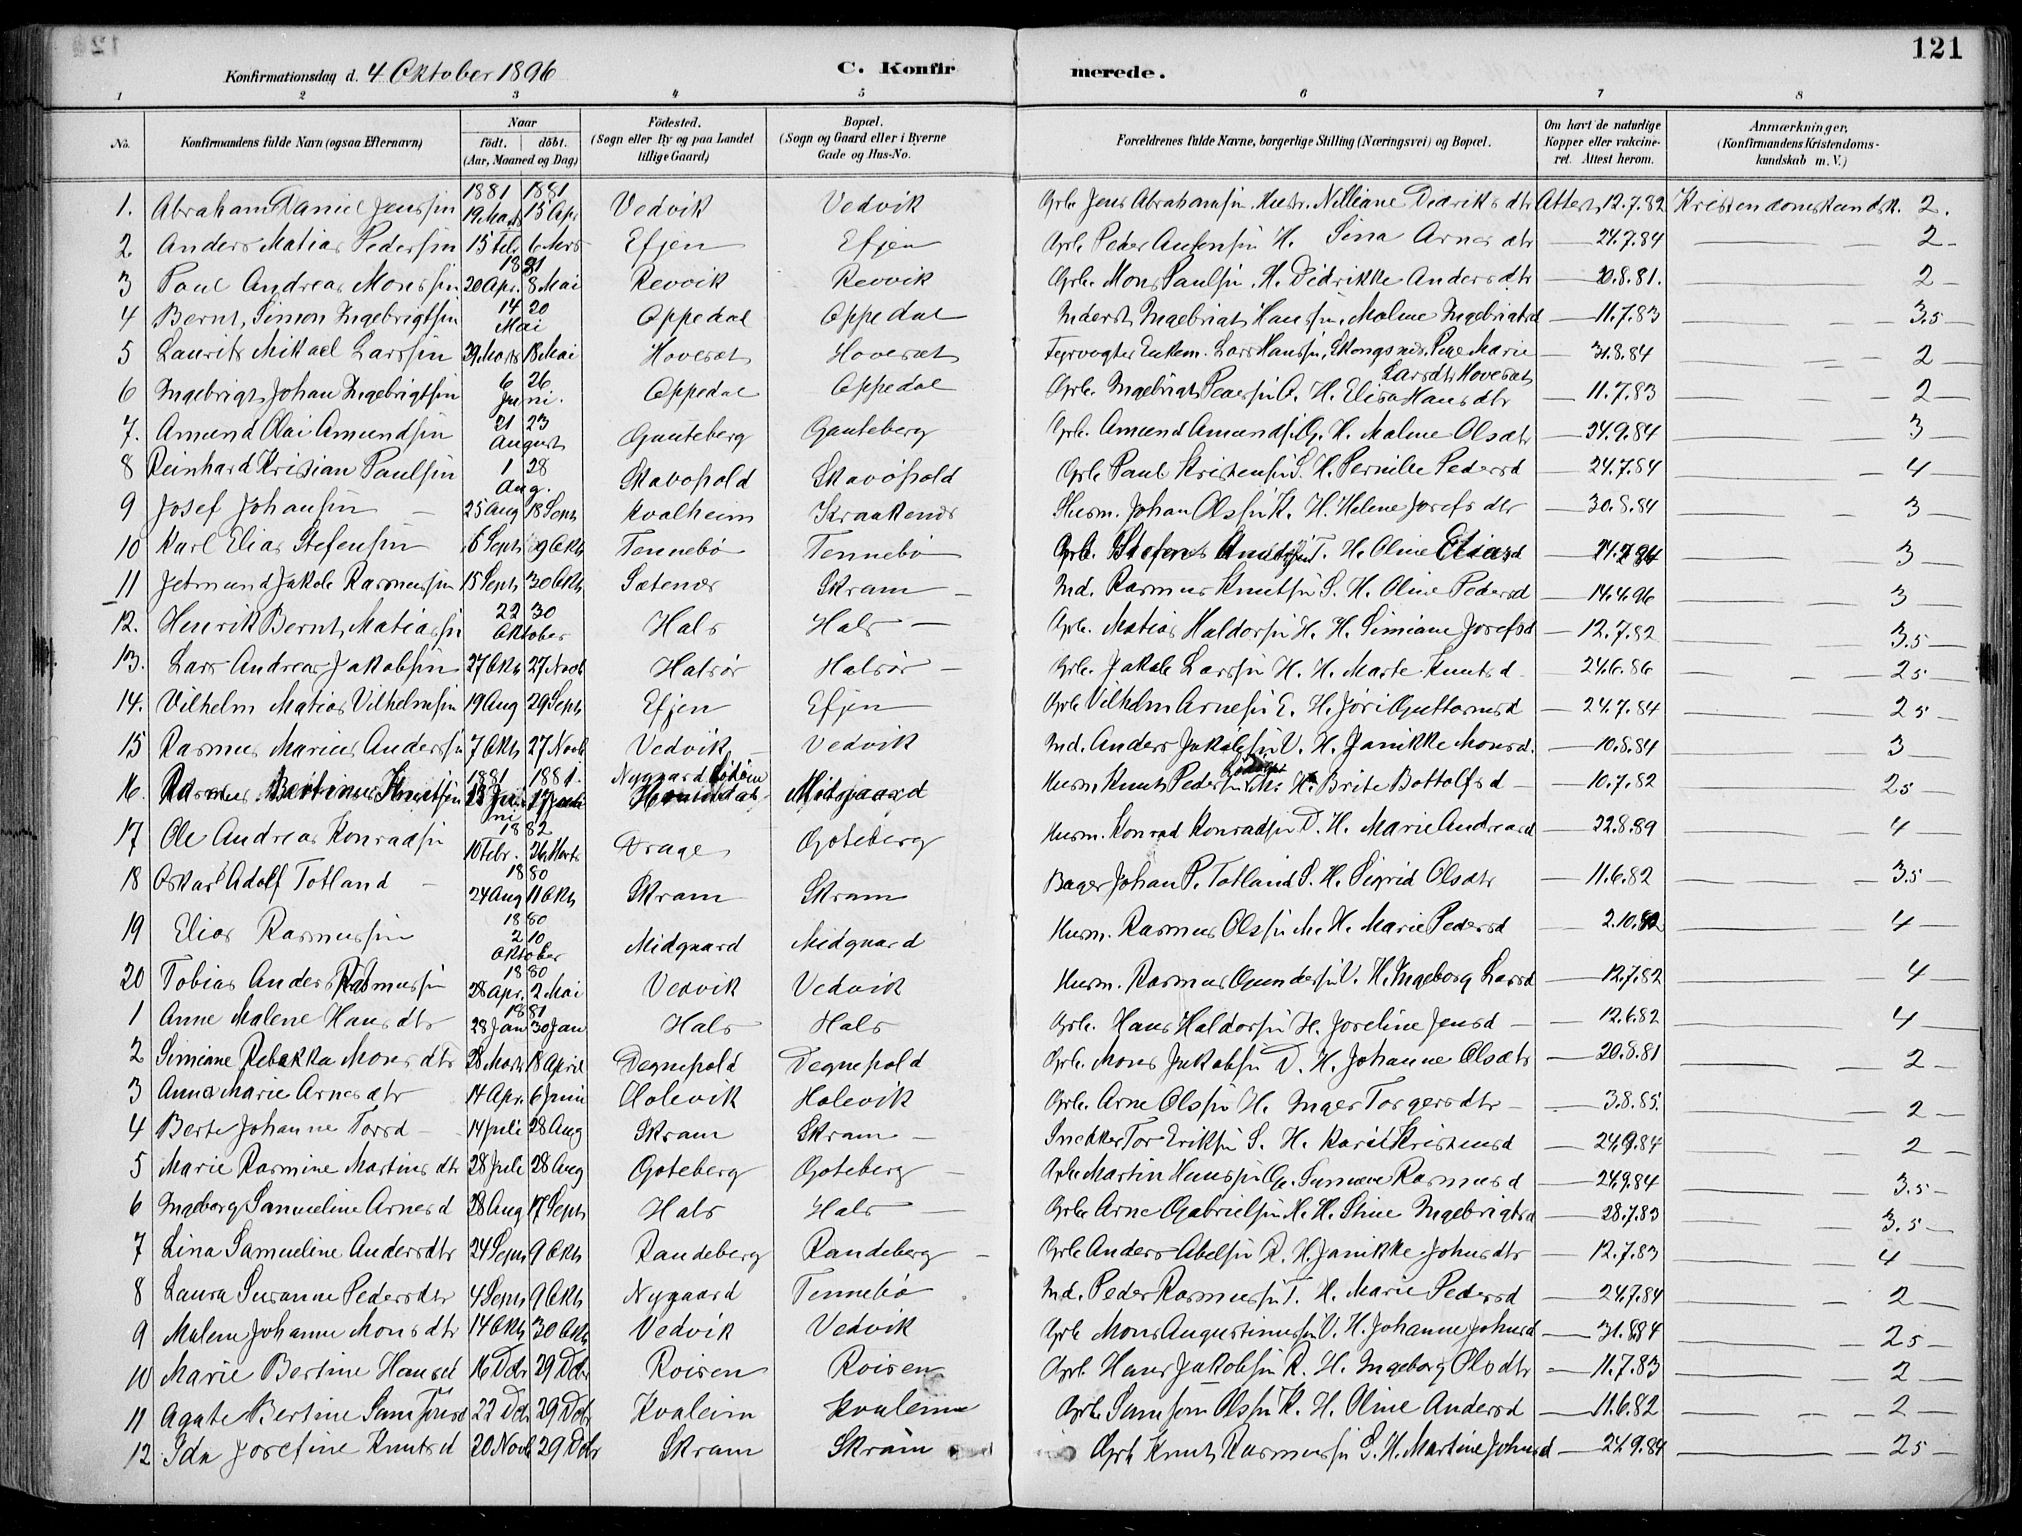 121
Konfirmationsdag d. 4 Oktober 1896 C. Konfirmerede.
1 2 3 4 5 6 7 8
No. Konfirmandens fulde Navn (ogsaa Efternavn) Naar födt. döbt. (Aar, Maaned og Dag) Födested. (Sogn eller By og paa Landet tillige Gaard) Bopæl. (Sogn og Gaard eller i Byerne Gade og Hus-No. Forældrenes fulde Navne, borgerlige Stilling (Næringsvei) og Bopæl. Om havt de naturlige Kopper eller vakcineret. Attest herom. Anmærkninger, (Konfirmandens Kristendomskundskab m. V.)
1. Abraham Daniel Jenssøn 1881 19 Marts 1881 15 Apr Vedvik Vedvik Grb. Jens Abrahamsøn Hustr. Nilliane Didriksdtr Attest 12.7.82 Kristendomskundsk. 2.
2. Anders Matias Pedersøn 15 Febr 6 Mars Efjen Efjen Grb. Peder H. Sina Arnesdtr — 24.7.84 — 2 —
3 Paul Andreas Monssøn 1881 20 Apr. 8 Mai Revvik Revvik Grb. Mons Paulsøn. H. Didrikke Andersdtr — 20.8.81. — 2 —
4 Bernt Simon Ingebrigtsøn 14 20 Mai Oppedal Oppedal Inderst Ingebrigt Hanssøn. Malene Ingebrigtsd — 11.7.83 — 3.5 —
5 Laurits Mikael Larssøn 29 Marts 18 Mai Hovesæt Hovesæt Fyrvogter Enkem. Lars Hanssøn, Pige Marie Larsdtr Hovesæt — 31.8.84 — 2
6 Ingebrigt Johan Ingebrigtsøn 6 26 Juni. Oppedal Oppedal Grb. Ingebrigt Pedersøn O. H. Elisa Hansdtr — 11.7.83 — 2 —
7. Amund Olai Amundsøn 21 23 August Gauteberg Gauteberg Grb. Amund Amundsøn G. H. Malene Olsdtr — 24.9.84 — 3 —
8 Reinhard Kristian Paulsøn 1 28 Aug. Skavøpold Skavøpold Grb Paul Kristensøn S. H. Pernille Pedersd — 24.7.84 — 4 —
9 Josef Johansøn — 25 Aug 18 Sept Kvalheim Kraakenæs Husm. Johan Olssøn K. H. Helene Josefsdtr — 30.8.84 — 3 —
10 Karl Elias Stefensøn 6 Sept 9 Okt Tennebø Tennebø Grb. Stefen T. H. Oline Eliasd — 3 —
11 Jetmund Jakob Rasmussøn 15 Sept 30 Okt Sætenæs Skram — Ind. Rasmus Knutsøn S. H. Oline Pedersd — 14.4.96 — 3 —
12. Henrik Bernt Matiassøn 22 30 Oktober Hals Hals — Grb. Matias Haldorsøn H. H. Simiane Josefsd — 12.7.82 — 3.5 —
13. Lars Andreas Jakobsøn 27 Okt 27 Novb Halsør Halsør — Grb. Jakob Larssøn H. H. Marte Knutsd — 24.6.86 — 25 —
14. Vilhelm Matias Vilhelmsøn 19 Aug 29 Sept Efjen Efjen Grb Vilhelm Arnesøn E. H. Jøri Guttormsd — 24.7.84 — 25 —
15 Rasmus Marius Anderssøn 7 Okt 27 Novb Vedvik — Vedvik Ind. Anders Jakobsøn V. H. Janikke Monsd. — 10.8.84 — 3 —
16. Rasmus Bertinus Knutsøn 1881 1881. Nygaard Midgaard Husm Knut Pedersøn H. Brite Bottolfsd — 10.7.82 — 25 —
17 Ole Andreas Konradsøn 1882 10 Febr. 26 Marts Drage Goteberg Husm. Konrad Konradsøn D. H. Marie Andreasd — 22.8.89 — 4 —
18 Oskar Adolf Totland — 1880 24 Aug 11 Okt Skram Skram Bager Johan P. Totland S. H. Sigrid Olsdtr — 11.6.82 — 3.5 —
19 Elias Rasmussøn 1880 2 10 Oktober Midgaard Midgaard Husm. Rasmus Olssøn M. H. Marie Pedersd — 2.10.82 — 4 —
20 Tobias Anders Rasmussøn 1880 28 Apr. 2 Mai Vedvik Vedvik Husm. Rasmus Gundersøn V. H. Ingeborg Larsd — 12.7.82 — 4
1 Anne Malene Hansdtr 1881 28 Jan 30 Jan Hals Hals Grb. Hans Haldorsøn H. Joreline Jensd — 12.6.82 — 4 —
2 Simiane Rebekka Monsdtr 28 Marts 18 April Degnepold Degnepold Grb. Mons Jakobsøn D. H. Johanne Olsdtr — 20.8.81 — 2 —
3 Anna Marie Arnesdtr 14 Apr. 6 Juni Holevik Holevik Grb. Arne Olssøn H. Inger Torgersdtr — 3.8.85. — 2 —
4 Berte Johanne Torsd — 14 Juli 28 Aug Skram Skram — Snedker Tor Eriksøn S. H. Karil Kristensd — 24.9.84 — 2 —
5 Marie Rasmine Martinsdtr 28 Juli 28 Aug Goteberg Goteberg — Grb Martin Hanssøn G. Sunneve Rasmusd — 24.9.84 — 3.5 —
6 Ingeborg Samueline Arnesd 28 Aug 17 Sept Hals Hals — Grb Arne Gabrielsøn H. H. Stine Ingebrigtsd — 28.7.83 — 3.5 —
7 Lina Samueline Andersdtr 24 Sept 9 Okt Randeberg Randeberg — Grb Anders Abelsøn R. H. Janikke Johnsdtr — 12.7.83 — 4 —
8 Laura Susanne Pedersdtr 4 Sept 9 Okt Nygaard Tennebø Ind. Peder Rasmussøn T. H. Marie Pedersd — 24.7.84 — 2 —
9 Malene Johanne Monsdtr 14 Okt 30 Okt Vedvik Vedvik Grb Mons Augustinussøn V. H. Johanne Johnsd — 31.8.84 — 25 —
10 Marie Bertine Hansd 16 Dcbr 29 Dcbr Roisen Roisen Grb. Hans Jakobsøn R. H. Ingeborg Olsdtr — 11.7.83 — 2 —
11 Agate Bertine Samsonsd 22 Dcbr 29 Dcbr Kvaleim Kvaleim Grb. Samson Olssøn K. H. Oline Andersd — 11.6.82 — 2 —
12 Ida Josefine Knutsd 20 Novb 29 Dcbr Skram Skram Grb Knut Rasmussøn S. H. Martine Johnsd — 24.9.84 — 25 —